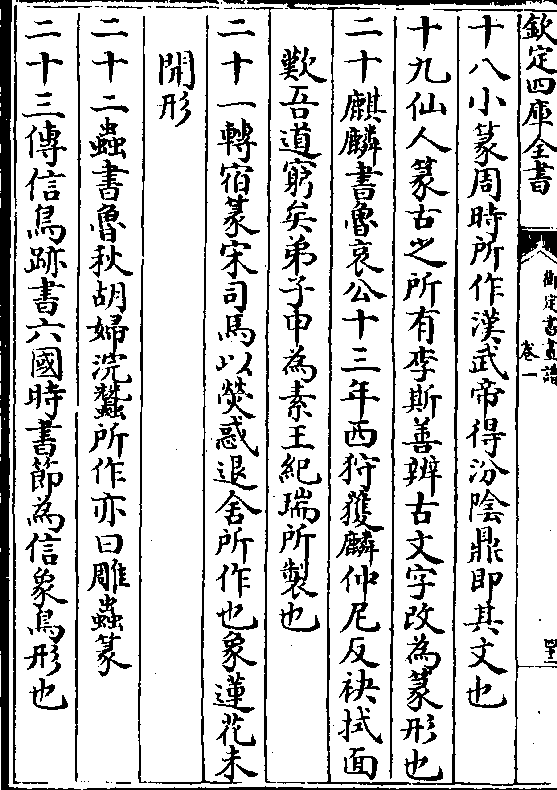 欽定四庫全書
御定書畫譜
卷一
十八小篆周時所作漢武帝得汾陰鼎即其文也
十九仙人篆古之所有李斯善辨古文字改為篆形也
二十麒麟書魯哀公十三年西狩獲麟仲尼反袂拭面
歎吾道窮矣弟子申為素王紀瑞所製也
二十一轉宿篆宋司馬以熒惑退舍所作也象蓮花未
開形
二十二蟲書魯秋胡婦浣蠶所作亦曰雕蟲篆
二十三傳信鳥跡書六國時書節為信象鳥形也